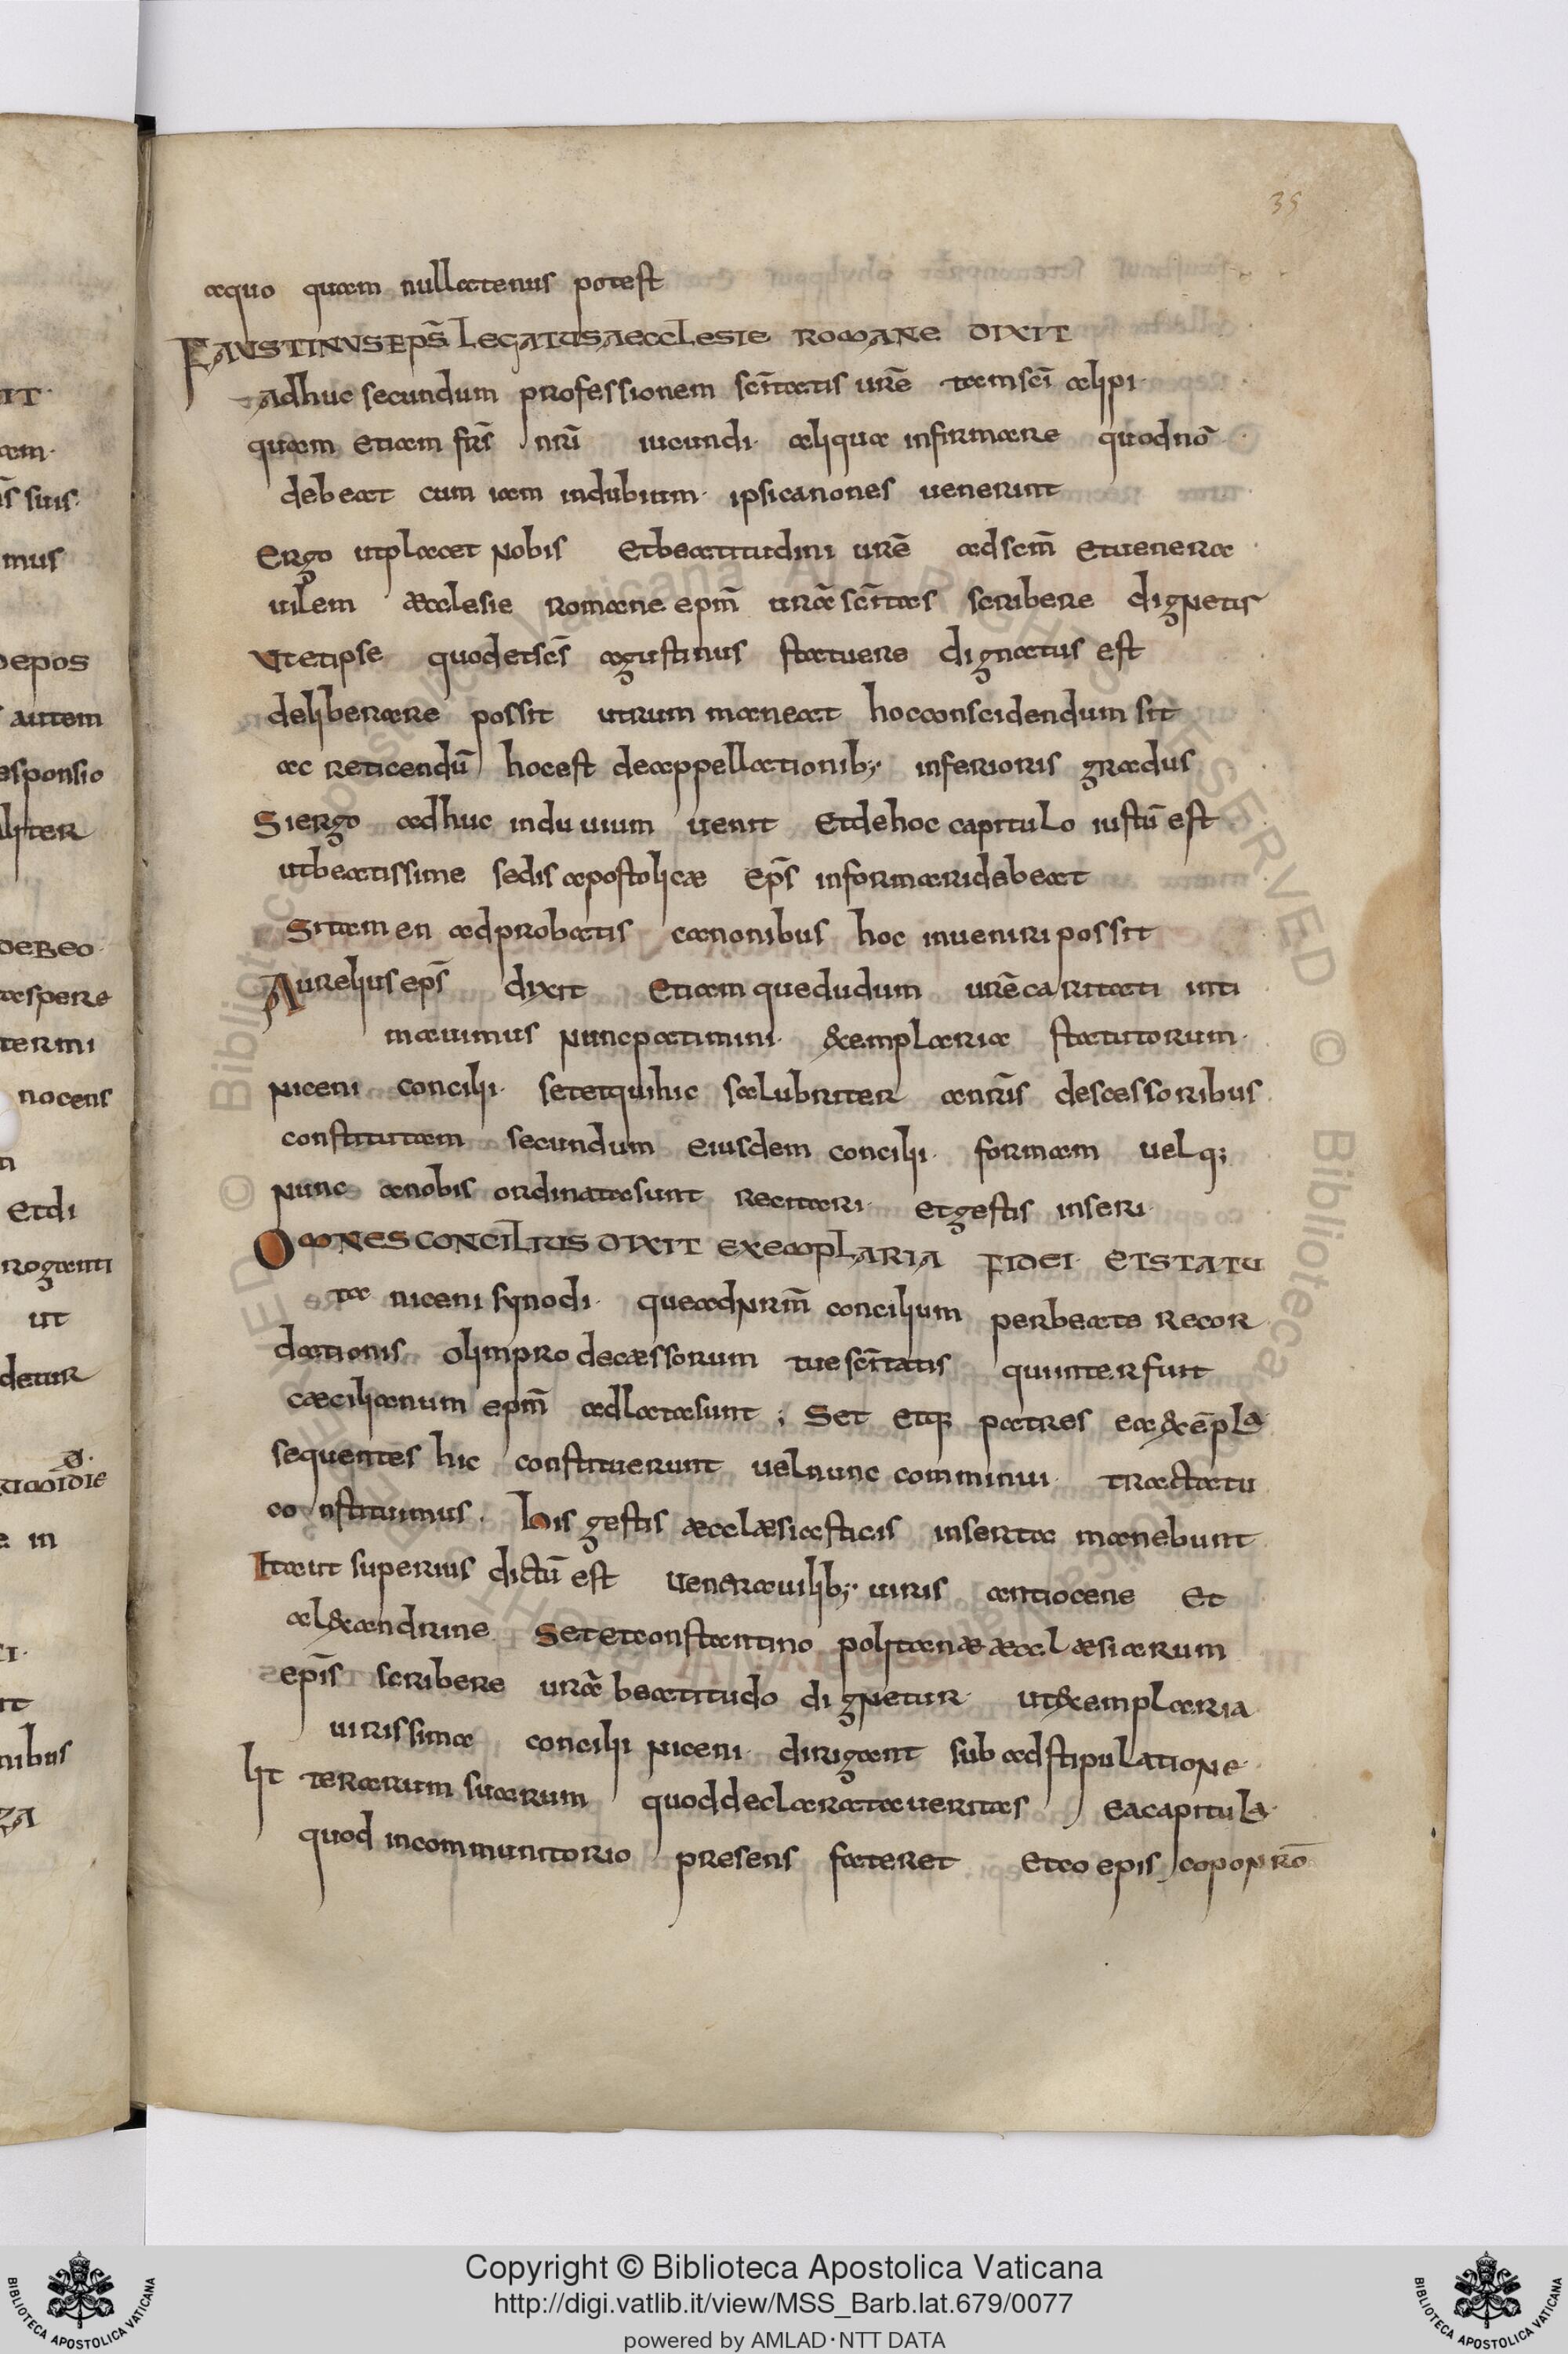 35
aequo quam nullatenus potest
FAUSTINUS EPS̄ LEGATUS AECCLESIE ROMANE DIXIT
adhuc secundum professionem sc̄itatis ur̄e tam sc̄i alipi·
quam etiam fr̄is nr̄i iucundi· aliqua infirmare quod nō
debeat cum iam indubium· ipsi canones uenerint
Ergo ut placet nobis et beatitudini ur̄e ad sc̄m et uenera
uilem aecclesie romane ep̄m ur̄a sc̄itas scribere dignetis
Ut et ipse quod et sc̄s agustinus statuere dignatus est
deliberare possit utrum maneat hoc conscidendum sit
ac reticendū hoc est de appellationib; inferioris gradus
Si ergo adhuc induuium uenit et de hoc capitulo iustū est
ut beatissime sedis apostolicæ ep̄s informari debeat
Si tamen adprobatis canonibus hoc inueniri possit
Aurelius ep̄s dixit Etiam que dudum ur̄e caritati inti
mauimus nunc patimini· &emplaria statutorum·
niceni concilii· set et qui hic salubriter a nr̄is descessoribus
constitutam secundum eiusdem concilii· formam uel q;
nunc a nobis ordinata sunt recitari· et gestis inseri·
OMNES CONCILIUS DIXIT EXEMPLARIA FIDEI· ET STATU
ta niceni synodi· que ad nr̄m concilium per beate recor
dationis olim prodecæssorum tue sc̄itatis qui interfuit
cæcilianum ep̄m adlata sunt; Set et q; patres ea &ēpla
sequentes hic constituerunt uel nunc comminui· tractatu
constituimus. his gestis æcclæsiasticis inserta manebunt
Ita ut superius dictū est uenerauilib; uiris antiocene et
al&andrine Set et constantinopolitanæ æcclæsiarum
ep̄is scribere ur̄a beatitudo dignetur· ut &emplaria
uirissima concilii niceni· dirigant sub adstipulatione·
litterarum suarum quod declarata ueritas ea capitula·
quod in communitorio presens fateret et coepiscopo nr̄o
IT·
am·
s̄ suis·
mus
depos
autem
esponsio
aliter
DEBEO·
aspere
termi
nocens
Etdi
roganti
ut
detur
e in
nibus
© Biblioteca Apostolica Vaticana ALL RIGHTS RESERVED © Biblioteca Apostolica Vaticana ALL RIGHTS RESERVED
BIBLIOTECA APOSTOLICA VATICANA
Copyright © Biblioteca Apostolica Vaticana
http://digi.vatlib.it/view/MSS_Barb.lat.679/0077
powered by AMLAD·NTT DATA
BIBLIOTECA APOSTOLICA VATICANA